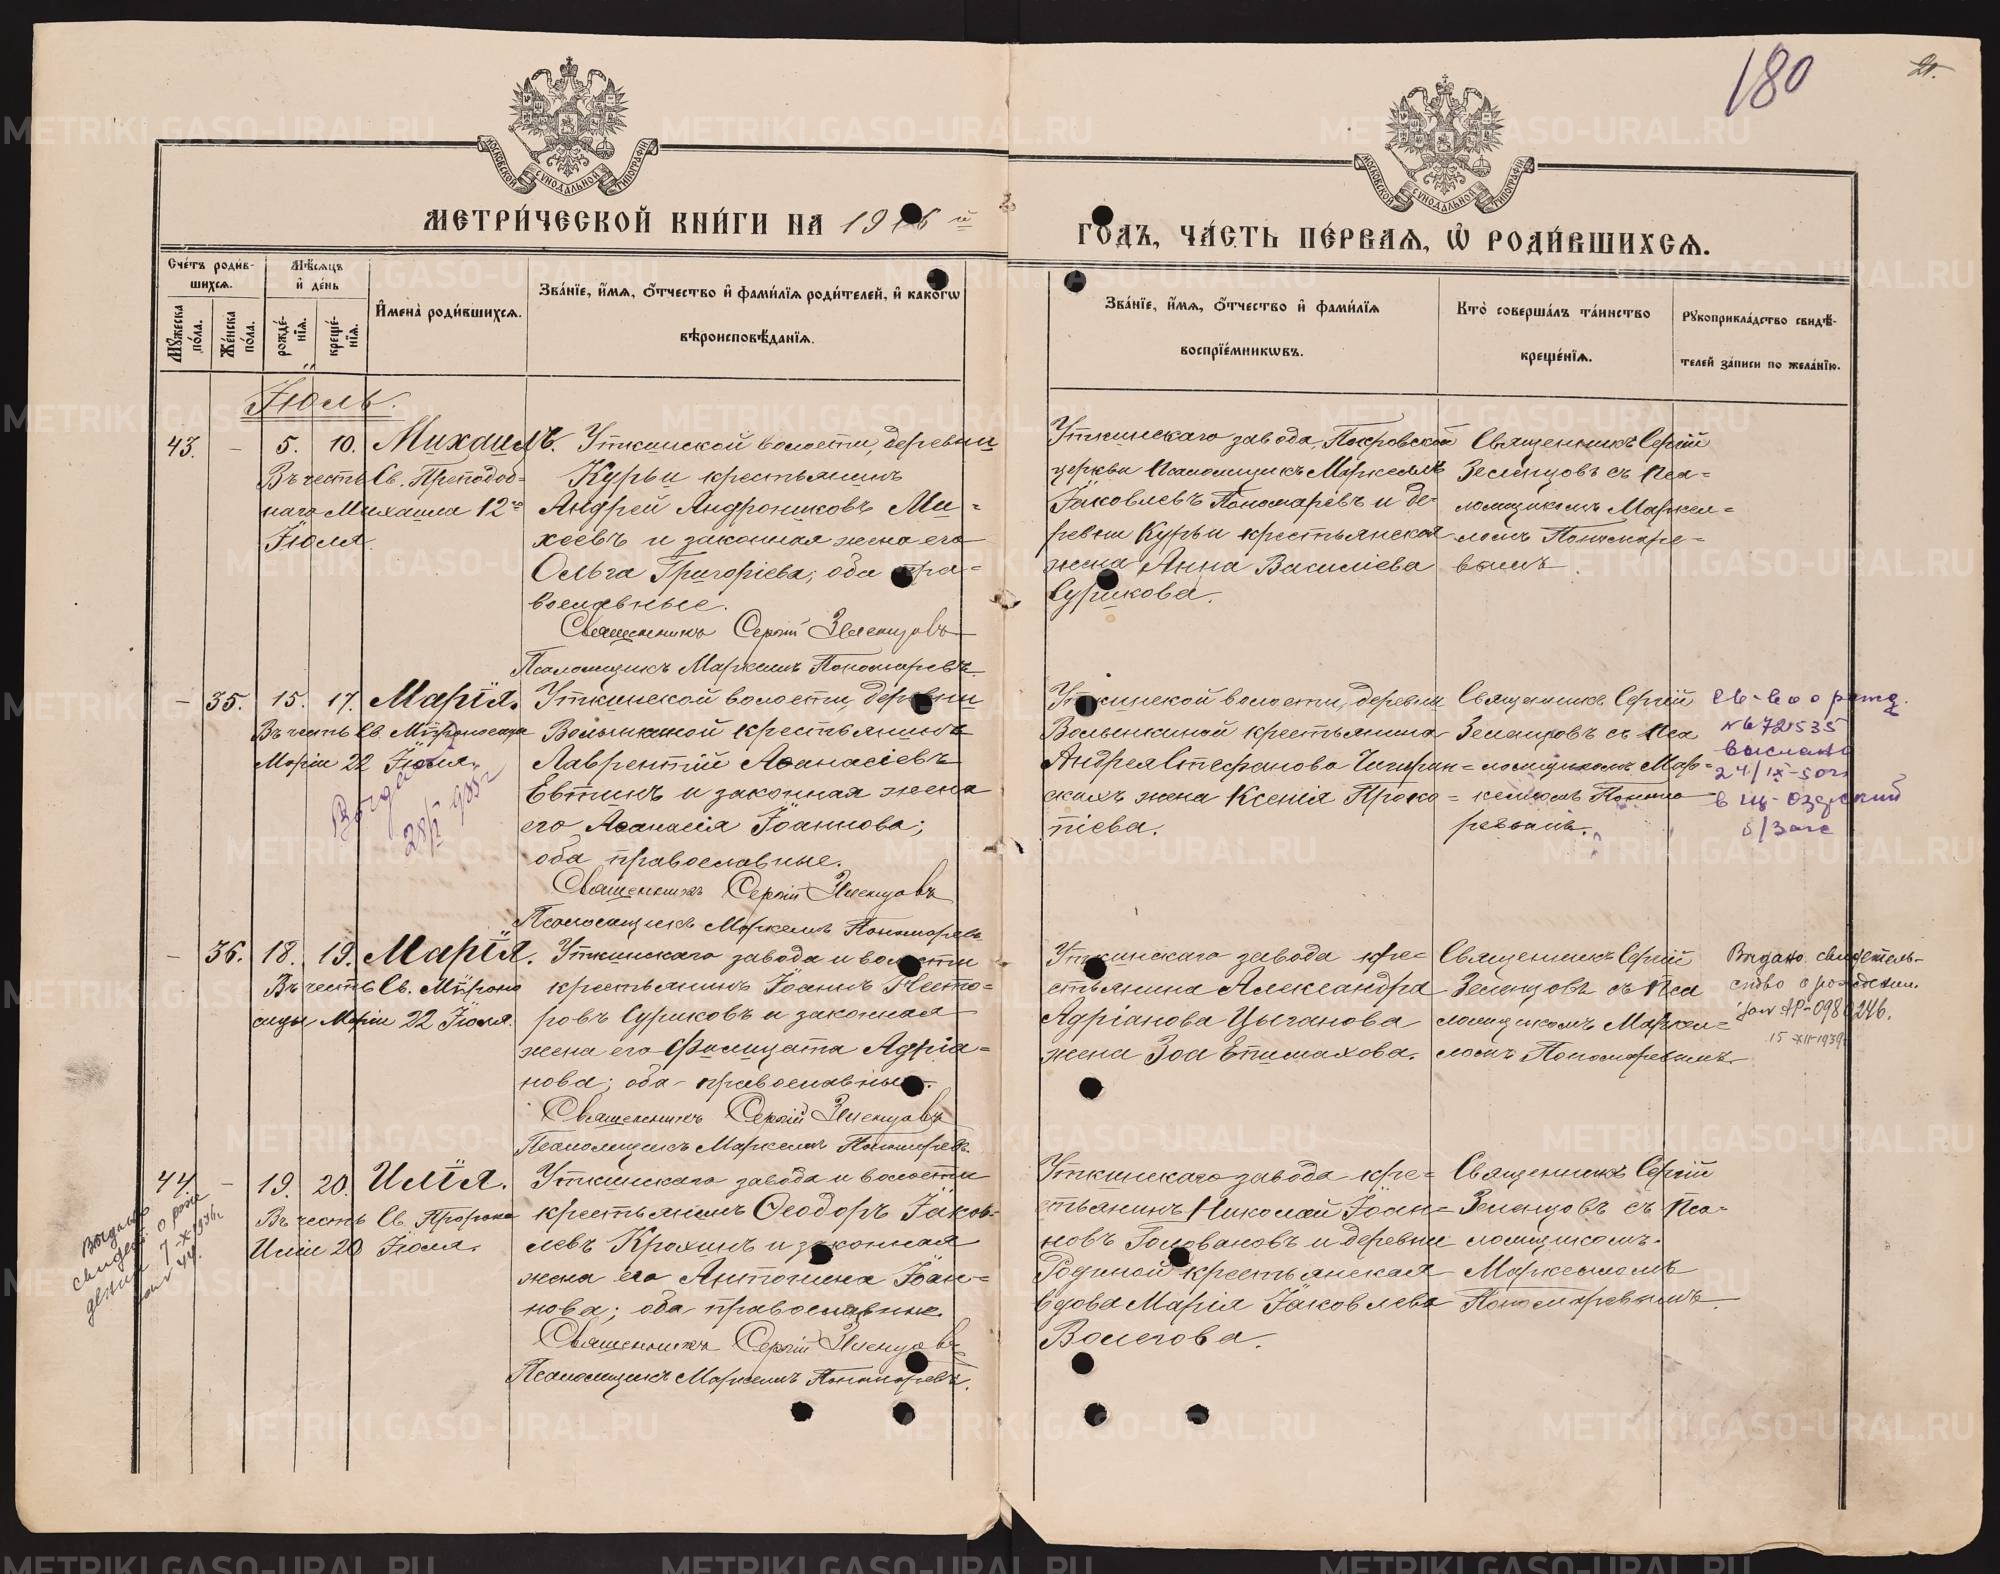 180
21.
МОСКОВСКОЙ СУНОДАЛЬНОЙ ТИПОГРАФІИ
МОСКОВСКОЙ СУНОДАЛЬНОЙ ТИПОГРАФІИ
МЕТРИ́ЧЕСКОЙ КНИ́ГИ НА 1916 й
ГО́ДЪ, ЧА́СТЬ ПЕ́РВАЯ, Ѡ҆ РОДИ́ВШИХСЯ.
Сче́тъ роди́в-
шихся.
Мꙋ́жеска по́ла.
Же́нска по́ла.
Мѣ́сяцъ
и҆ де́нь
рожде́-
нїя.
креще́-
нїя.
И҆мена̀ роди́вшихся.
Зва́нїе, и҆́мя, о҆́тчество и҆ фами́лїя роди́телей, и҆ како́гѡ
вѣроисповѣ́данїя.
Зва́нїе, и҆́мя, о҆́тчество и҆ фами́лїя
воспрїе́мникѡвъ.
Кто̀ соверша́лъ та́инство
креще́нїя.
Рꙋкоприкла́дство свидѣ́-
телей за́писи по жела́нїю.
Іюль.
43. - 5. 10. Михаилъ.
Въ честь Св. Преподоб-
наго Михаила 12го
Іюля
Уткинской волости, деревни
Курьи крестьянинъ
Андрей Андрониковъ Ми-
хеевъ и законная жена его
Ольга Григоріева; оба пра-
вославные.
Священникъ Сергій Зеленцовъ
Псаломщикъ Маркеллъ Пономаревъ
Уткинскаго завода, Покровской
церкви Псаломщикъ Маркеллъ
Іаковлевъ Пономаревъ и де-
ревни Курьи крестьянская
жена Анна Василіева
Сурикова.
Священникъ Сергій
Зеленцовъ съ Пса-
ломщикомъ Маркел-
ломъ Пономаре-
вымъ.
- 35. 15. 17. Марія.
Въ честь Св. Мѵроносицы
Маріи 22 Іюля.
Уткинской волости, деревни
Волынкиной крестьянинъ
Лаврентій Аѳанасіевъ
Евтинъ и законная жена
его Аѳанасія Іоаннова;
оба православные.
Священникъ Сергій Зеленцовъ
Псаломщикъ Маркеллъ Пономаревъ
Уткинской волости, деревни
Волынкиной крестьянина
Андрея Стефанова Чигирин-
скихъ жена Ксенія Проко-
піева.
Священникъ Сергій
Зеленцовъ съ Пса
ломщикомъ Мар-
келломъ Понома
ревымъ.
св-во о рожд.
№672535
выслано
24/IX-50г
в Щ-Озерский
б/загс
- 36. 18. 19. Марія.
Въ честь Св. Мѵроно
сицы Маріи 22 Іюля.
Уткинскаго завода и волости
крестьянинъ Іоаннъ Несто-
ровъ Суриковъ и законная
жена его Фелицата Адріа-
нова; оба православные.
Священникъ Сергій Зеленцовъ
Псаломщикъ Маркеллъ Пономаревъ.
Уткинскаго завода кре-
стьянина Александра
Адріанова Цыганова
жена Зоя Епимахова.
Священникъ Сергій
Зеленцовъ съ Пса
ломщикомъ Маркел-
ломъ Пономаревымъ.
Выдано свидетель-
ство о рождении.
15 XII-1939
44. - 19. 20. Илія.
Въ честь Св. Пророка
Иліи 20 Іюля.
Выдано
свидет. о рож
дении 7-X 1936г
Уткинскаго завода и волости
крестьянинъ Ѳеодоръ Іаков-
левъ Крохинъ и законная
жена его Антонина Іоан-
нова; оба православные.
Священникъ Сергій Зеленцовъ
Псаломщикъ Маркеллъ Пономаревъ.
Уткинскаго завода кре-
стьянинъ Николай Іоан-
новъ Головановъ и деревни
Родиной крестьянская
вдова Марія Іаковлева
Волегова.
Священникъ Сергій
Зеленцовъ съ Пса-
ломщикомъ
Маркелломъ
Пономаревымъ.
METRIKI.GASO-URAL.RU